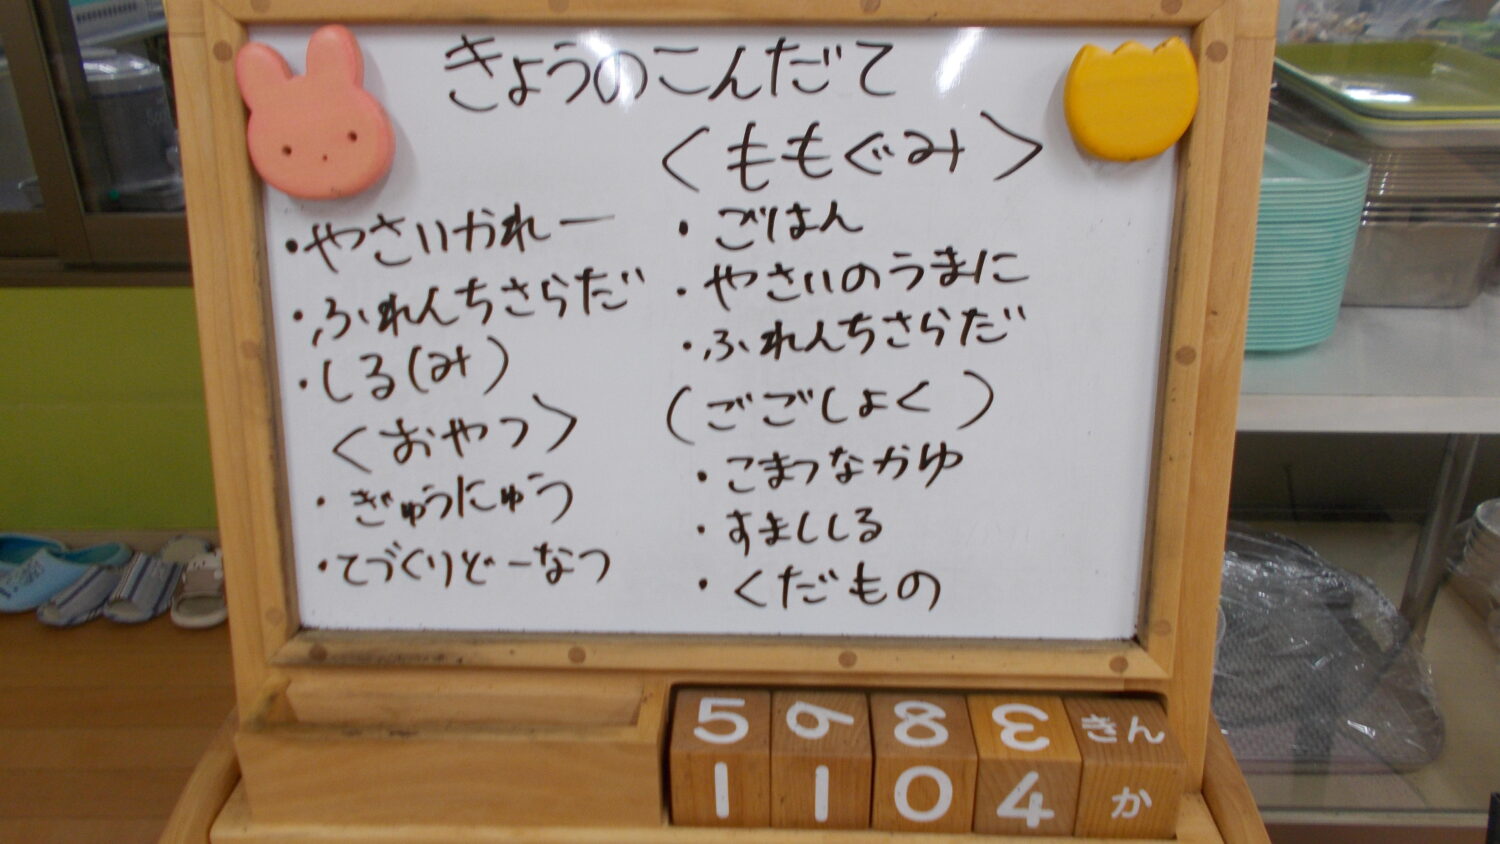 きょうのこんだて
・やさいかれー
・ふれんちさらだ
・しる(み)
<おやつ>
・ぎゅうにゅう
・てづくりどーなつ
<ももぐみ>
・ごはん
・やさいのうまに
・ふれんちさらだ
(ごごしょく)
・こまつなかゆ
・すまししる
・くだもの
5 6 8 3 きん
1 1 0 4 か